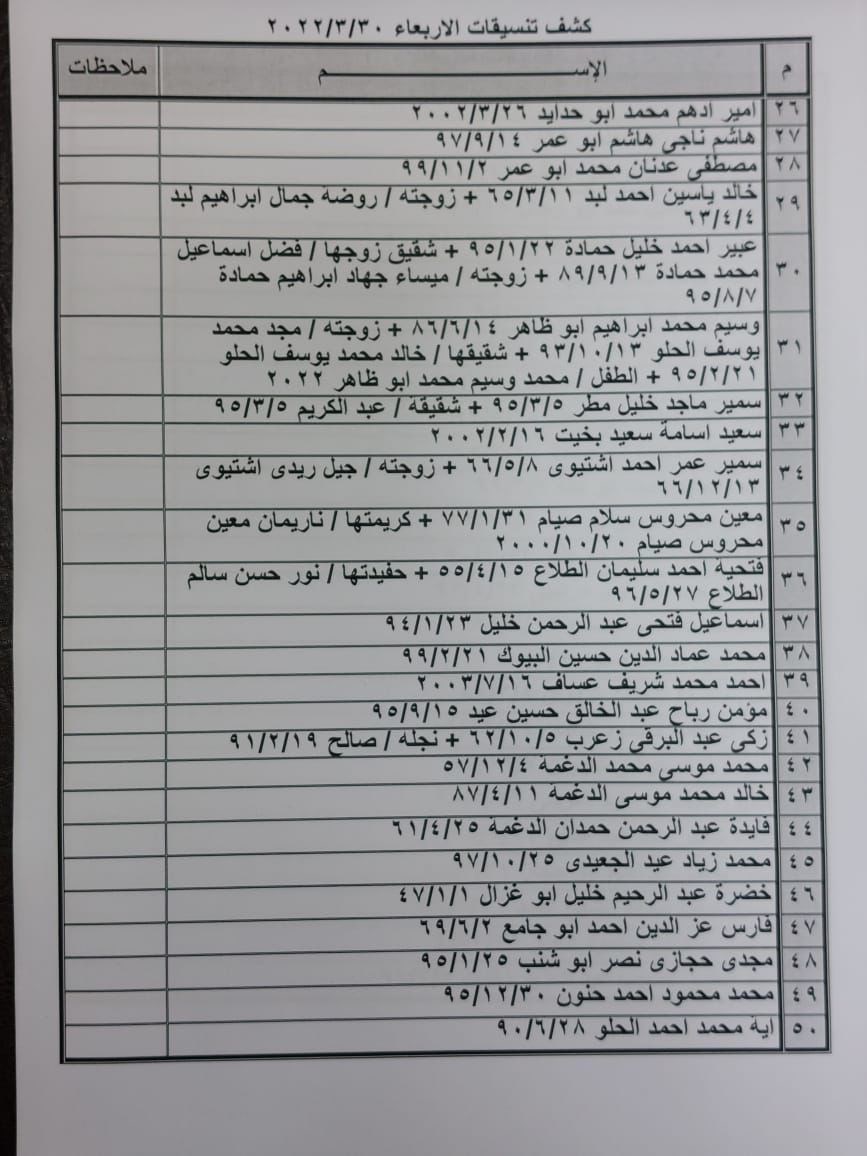 كشف تنسيقات الاربعاء ٢٠٢٢/٣/٣٠
م الإســـم ملاحظات
٢٦ امير ادهم محمد ابو حدايد ٢٠٠٢/٣/٢٦
٢٧ هاشم ناجى هاشم ابو عمر ٩٧/٩/١٤
٢٨ مصطفى عدنان محمد ابو عمر ٩٩/١١/٢
٢٩ خالد ياسين احمد لبد ٦٥/٣/١١ + زوجته / روضة جمال ابراهيم لبد
٦٣/٤/٤
٣٠ عبير احمد خليل حمادة ٩٥/١/٢٢ + شقيق زوجها / فضل اسماعيل
محمد حمادة ٨٩/٩/١٣ + زوجته / ميساء جهاد ابراهيم حمادة
٩٥/٨/٧
٣١ وسيم محمد ابراهيم ابو ظاهر ٨٦/٦/١٤ + زوجته / مجد محمد
يوسف الحلو ٩٣/١٠/١٣ + شقيقها / خالد محمد يوسف الحلو
٩٥/٢/٢١ + الطفل / محمد وسيم محمد ابو ظاهر ٢٠٢٢
٣٢ سمير ماجد خليل مطر ٩٥/٣/٥ + شقيقة / عبد الكريم ٩٥/٣/٥
٣٣ سعيد اسامة سعيد بخيت ٢٠٠٢/٢/١٦
٣٤ سمير عمر احمد اشتيوى ٦٦/٥/٨ + زوجته / جيل ريدى اشتيوى
٦٦/١٢/١٣
٣٥ معين محروس سلام صيام ٧٧/١/٣١ + كريمتها / ناريمان معين
محروس صيام ٢٠٠٠/١٠/٢٠
٣٦ فتحية احمد سليمان الطلاع ٥٥/٤/١٥ + حفيدتها / نور حسن سالم
الطلاع ٩٦/٥/٢٧
٣٧ اسماعيل فتحى عبد الرحمن خليل ٩٤/١/٢٣
٣٨ محمد عماد الدين حسين البيوك ٩٩/٢/٢١
٣٩ احمد محمد شريف عساف ٢٠٠٣/٧/١٦
٤٠ مؤمن رباح عبد الخالق حسين عيد ٩٥/٩/١٥
٤١ زكى عبد البرقى زعرب ٦٢/١٠/٥ + نجله / صالح ٩١/٢/١٩
٤٢ محمد موسى محمد الدغمة ٥٧/١٢/٤
٤٣ خالد محمد موسى الدغمة ٨٧/٤/١١
٤٤ فايدة عبد الرحمن حمدان الدغمة ٦١/٤/٢٥
٤٥ محمد زياد عيد الجعيدى ٩٧/١٠/٢٥
٤٦ خضرة عبد الرحيم خليل ابو غزال ٤٧/١/١
٤٧ فارس عز الدين احمد ابو جامع ٦٩/٦/٢
٤٨ مجدى حجازى نصر ابو شنب ٩٥/١/٢٥
٤٩ محمد محمود احمد حنون ٩٥/١٢/٣٠
٥٠ اية محمد احمد الحلو ٩٠/٦/٢٨